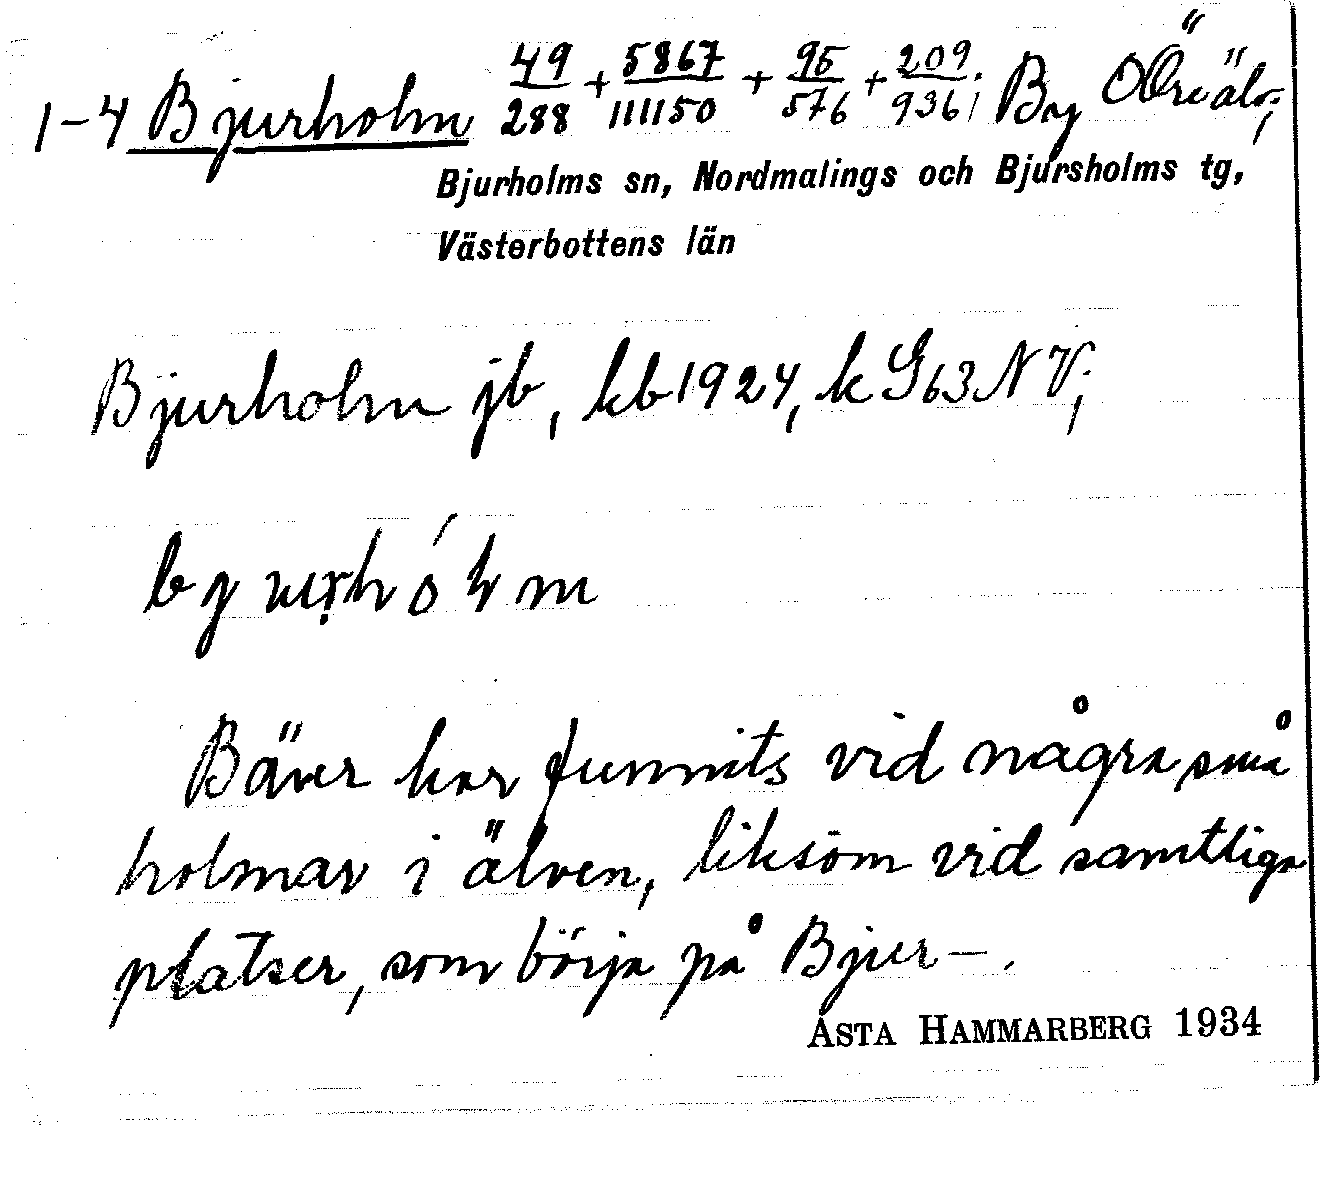 1-4 Bjurholm 49/288 + 5867/111150 + 95/576 + 209/936; By Öreälv;
Bjurholms sn, Nordmalings och Bjursholms tg,
Västerbottens län
Bjurholm jb, kb 1924, k G63NV;
Bäver har funnits vid några små
holmar i älven, liksom vid samtliga
platser, som börja på Bjur-.
ASTA HAMMARBERG 1934